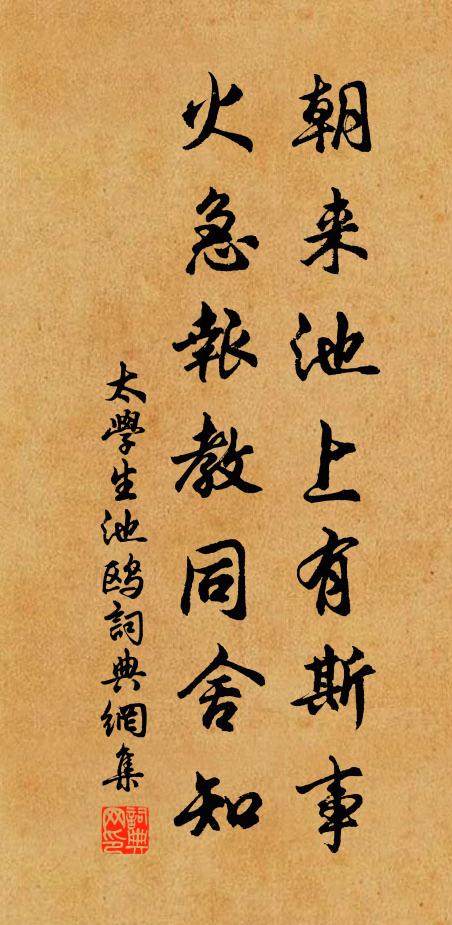 朝来池上有斯事
火急報教同舍知
太學生池鷗詞典網集
詞典网印